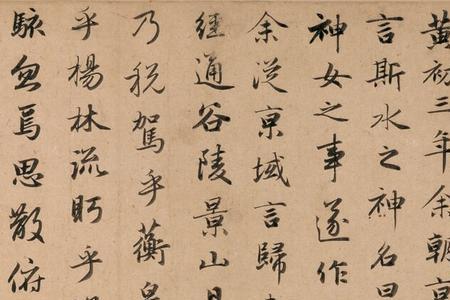 黄初三年余朝京
言斯水之神名曰
神女之事遂作
余従京域言歸
經通谷陵景山
乃税駕乎蘅皋
乎楊林流眄乎
駭忽焉思散俯